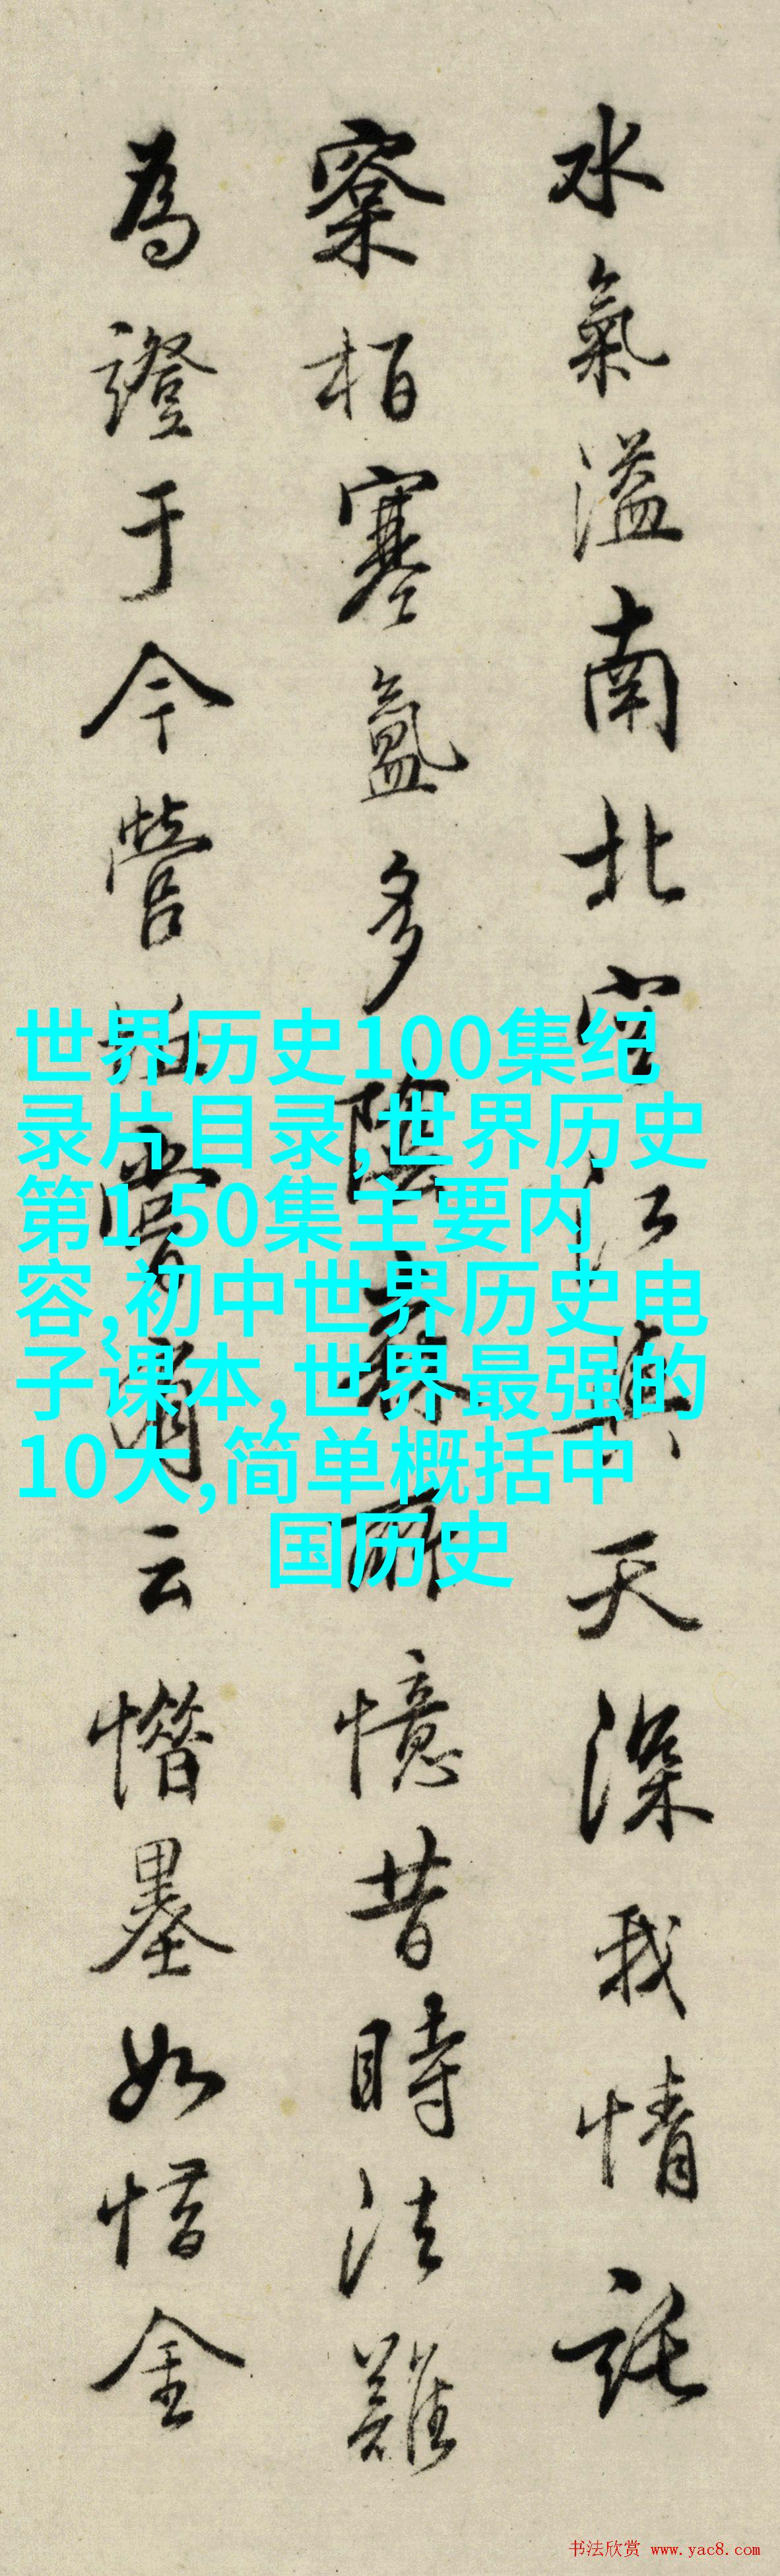 水氣溢南北空江與天深我情託
寮栢塞氳多陰森雨憶昔時法難
為證于今營
云惜墨如惜金
世界历史100集纪
录片目录,世界历史
第1-50集主要内
容,初中世界历史电
子课本,世界最强的
10大,简单概括中
国历史
书法欣赏 www.yac8.com